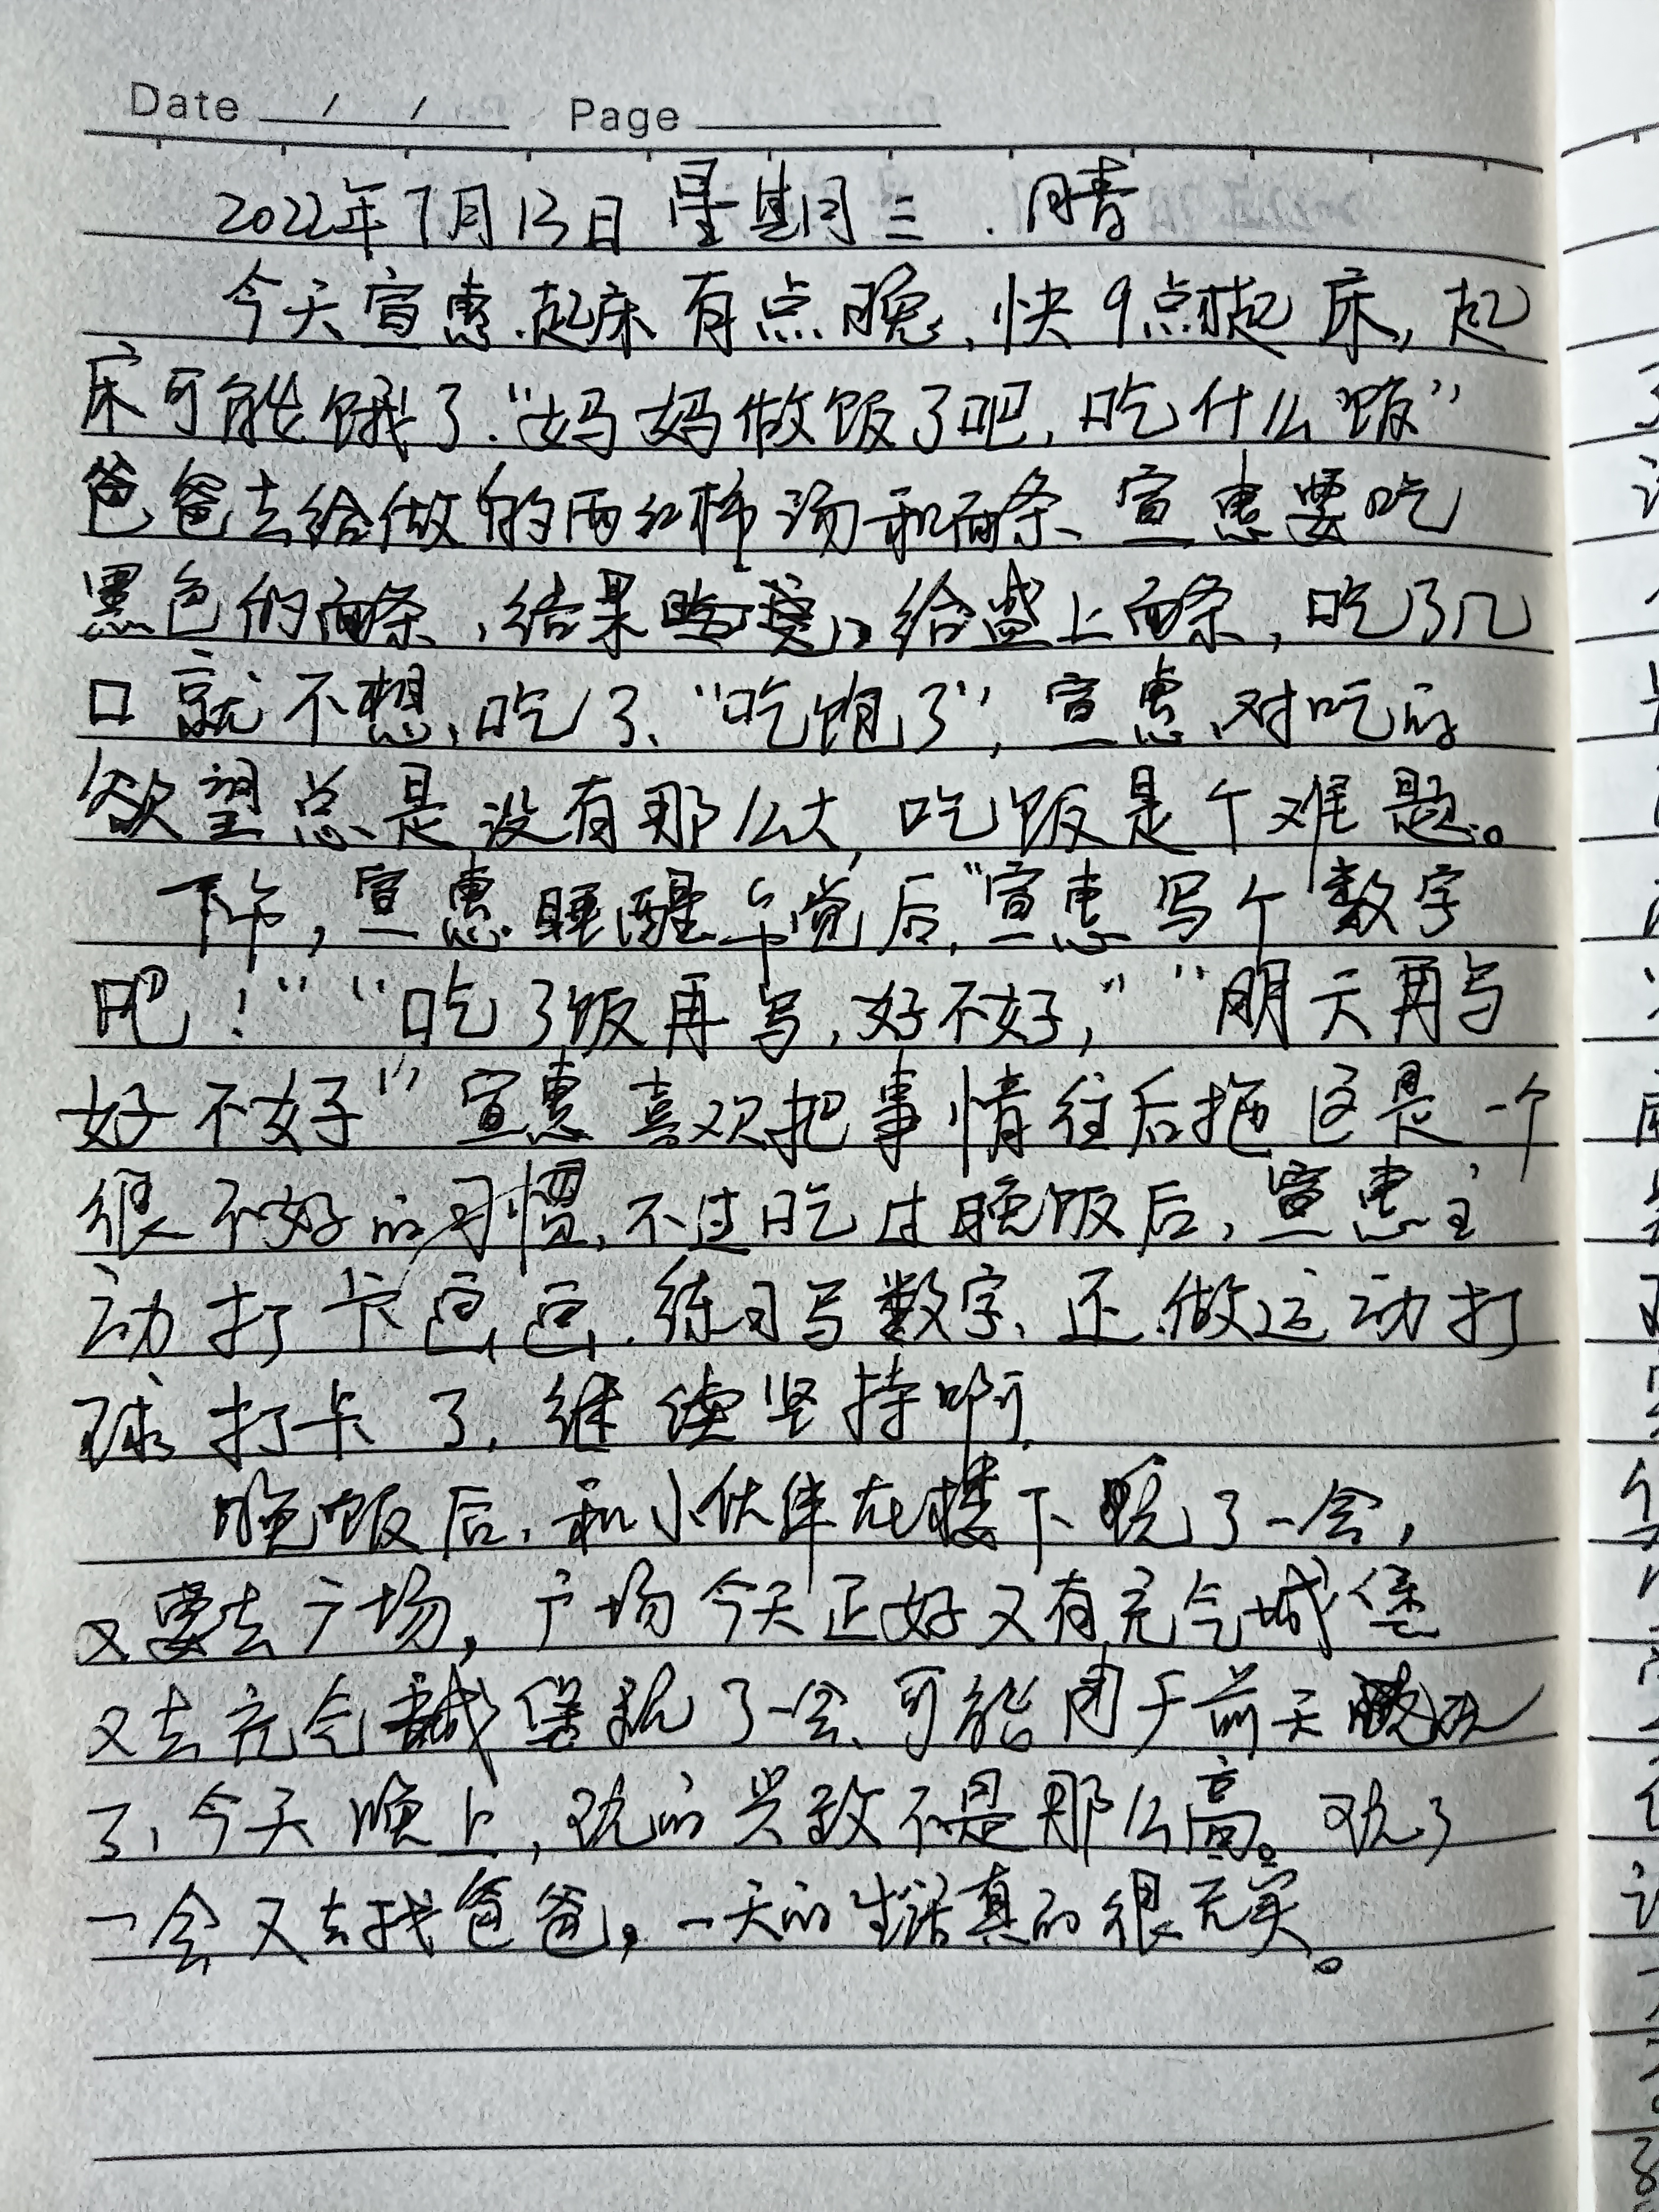 Date / / Page
2022年7月13日 星期三 . 晴
今天宣惠起床有点晚,快9点才起床,起
床可能饿了."妈妈做饭了吧,吃什么饭"
爸爸去给做的西红柿汤和面条、宣惠要吃
黑色的面条,结果给盛上面条,吃了几
口就不想吃了、"吃饱了",宣惠对吃的
欲望总是没有那么大,吃饭是个难题。
下午,宣惠睡醒午觉后,"宣惠写个数字
吧!""吃了饭再写,好不好,""明天再写
好不好"宣惠喜欢把事情往后拖这是一个
很不好的习惯,不过吃过晚饭后,宣惠主
动打卡.练习写数字、还做运动打
球打卡了,继续坚持啊,
晚饭后,和小伙伴在楼下玩了一会,
又要去广场,广场今天正好又有充气城堡
又去充气城堡玩了一会、可能由于前天玩
了,今天晚上,玩的兴致不是那么高。玩了
一会又去找爸爸,一天的生活真的很充实。